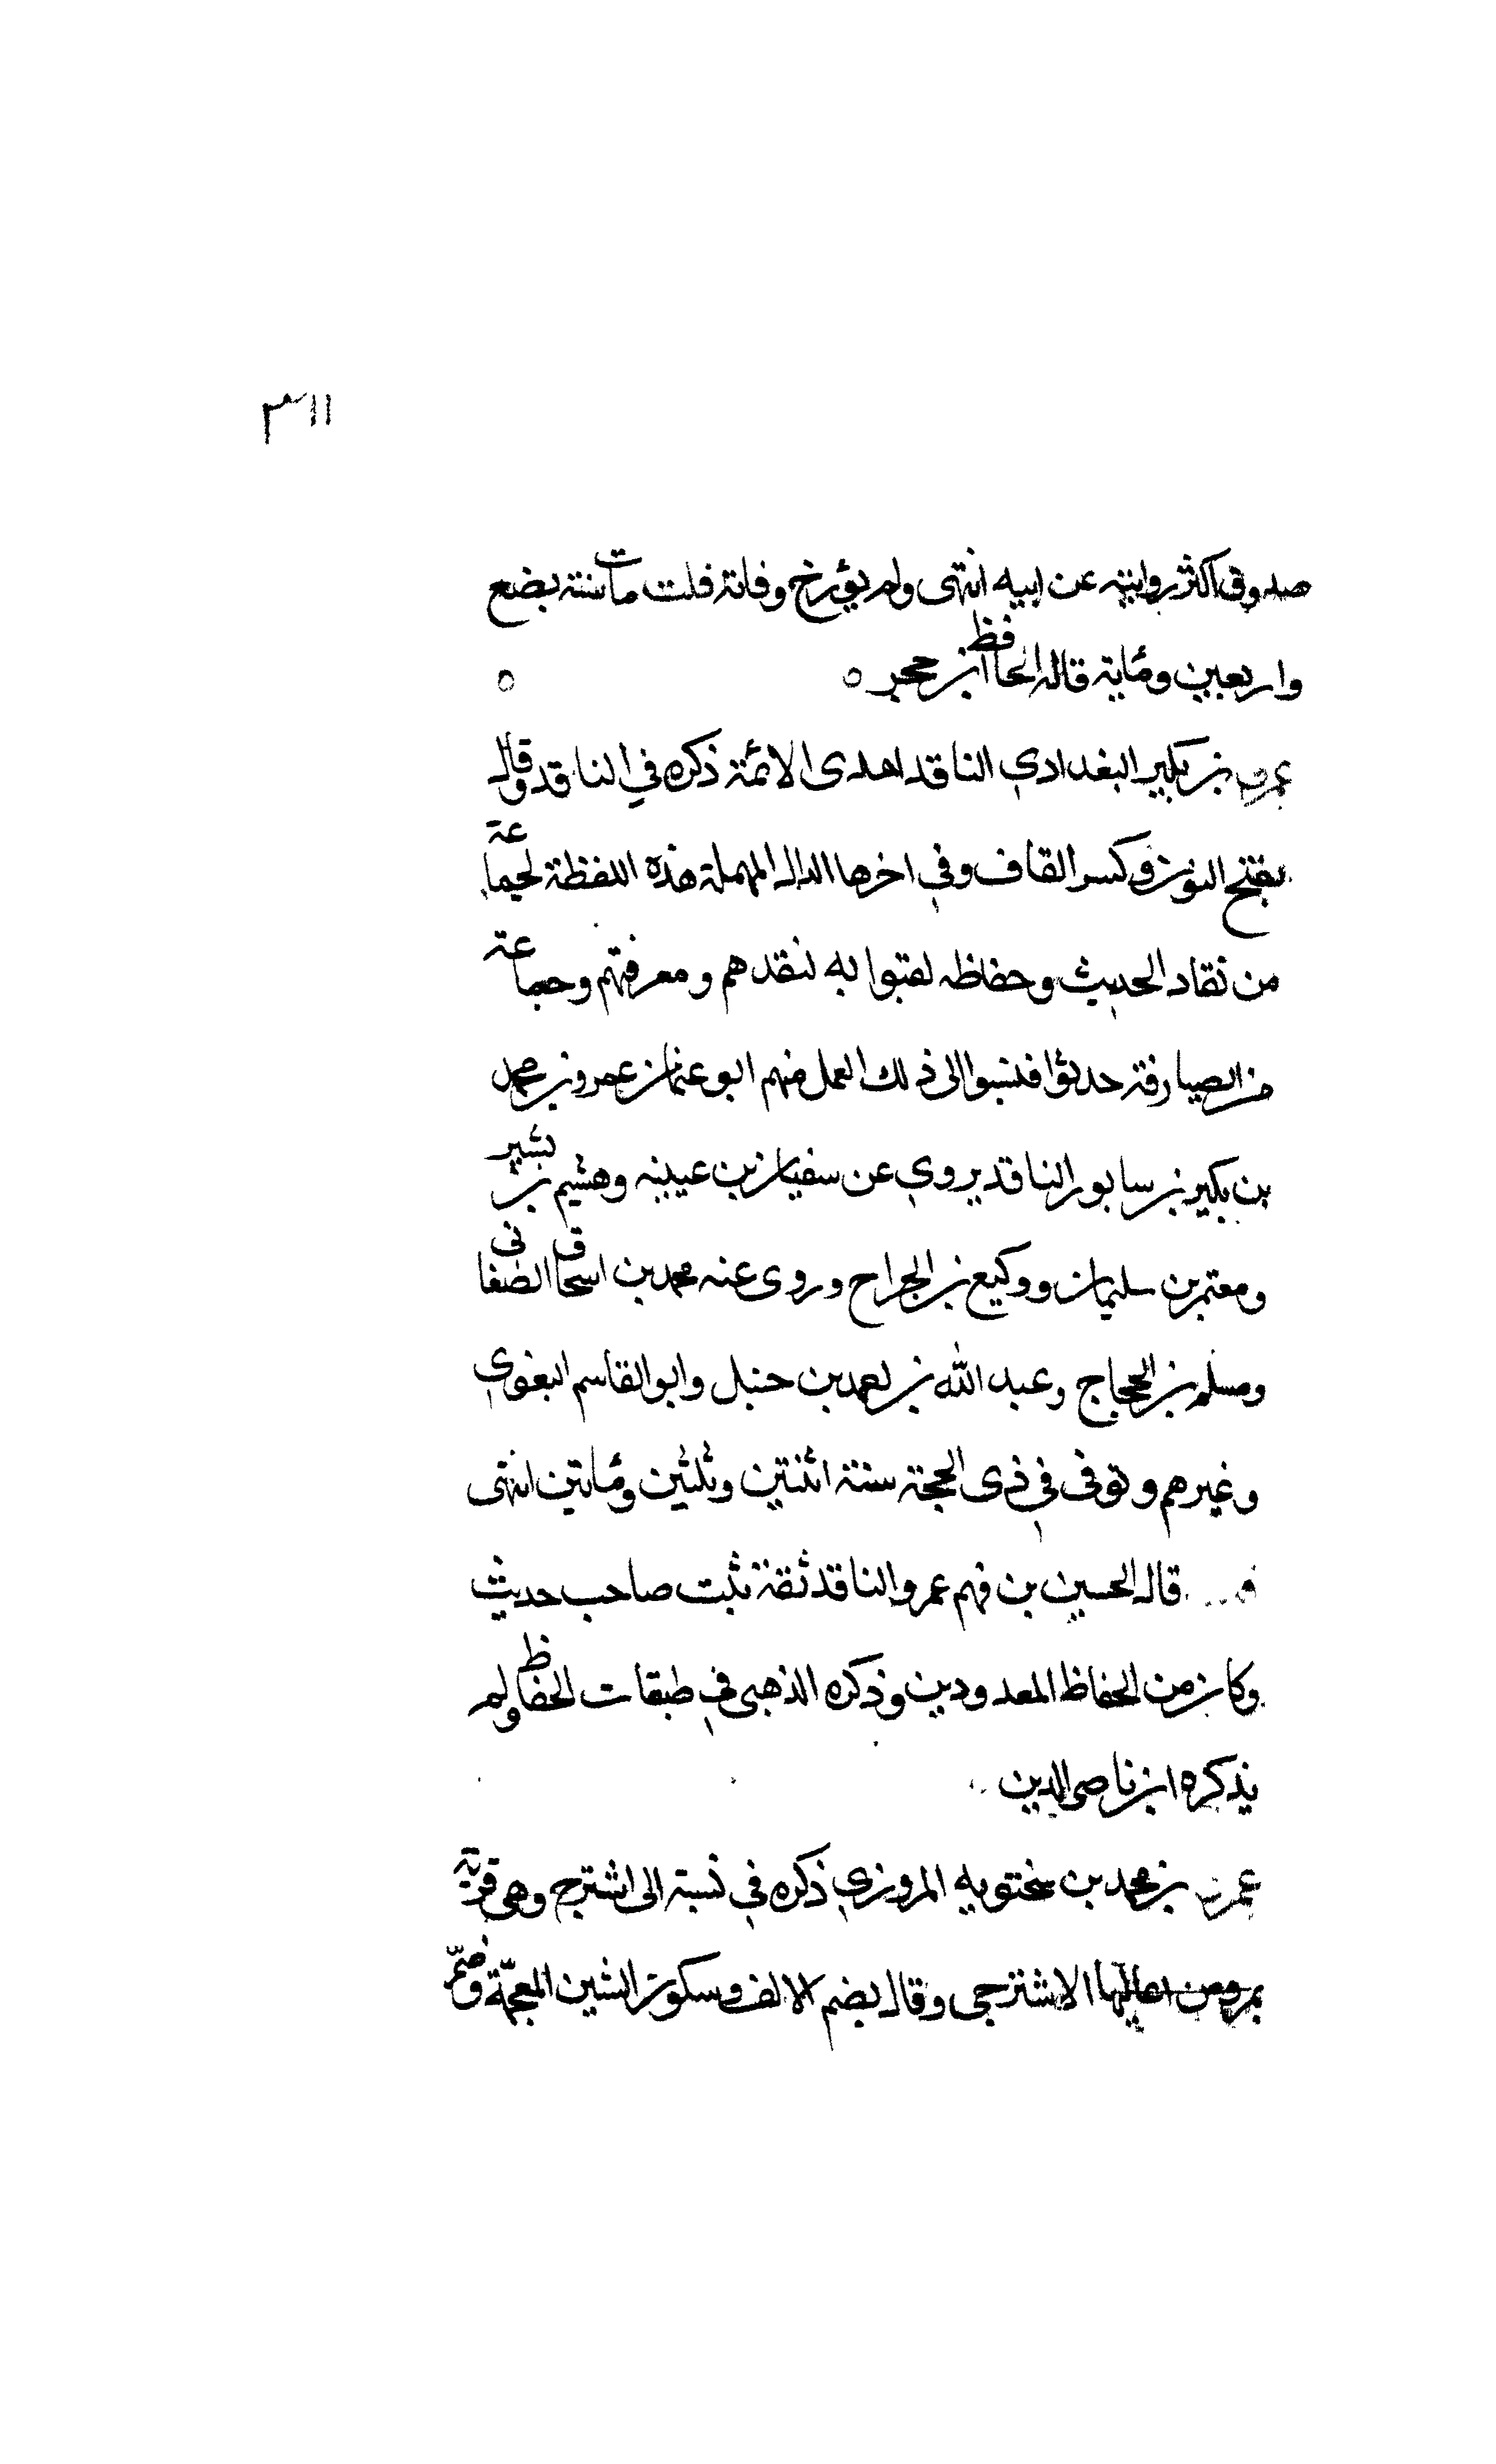 ٣١١
صدوق اكثر روايته عن ابيه انتهى ولم يؤرخ وفاته قلت مات سنة بضع
واربعين ومائة قاله الحافظ ابن حجر ه ه
عمرو بن بكير البغدادي الناقد احدى الائمة ذكره في الناقد وقال
بفتح النون وكسر القاف وفي اخرها الدال المهملة هذه اللفظة لجماعة
من نقاد الحديث وحفاظه لقبوا به لنقدهم ومعرفتهم وجماعة
من الصيارفة حدثوا فنسبوا الى ذلك العمل منهم ابو عثمان عمرو بن محمد
بن بكير بن سابور الناقد يروي عن سفيان بن عيينه وهشيم بن بشير
ومعتمر بن سليمان ووكيع بن الجراح وروى عنه محمد بن اسحاق الصغانى
ومسلم بن الحجاج وعبد الله بن احمد بن حنبل وابو القاسم البغوي
وغيرهم وتوفى في ذى الحجة سنة اثنتين وثلثين ومائتين انتهى
قال الحسين بن فهم عمرو الناقد ثقة ثبت صاحب حديث
وكان من الحفاظ المعدودين وذكره الذهبى في طبقات الحفاظ ولم
يذكره ابن ناصر الدين
عمرو بن محمد بن سختويه المروزي ذكره في نسبة الى اشترج وهى قرية
بمرو من اعاليها الاشترجى وقال بضم الالف وسكون الشين المعجمة وضم